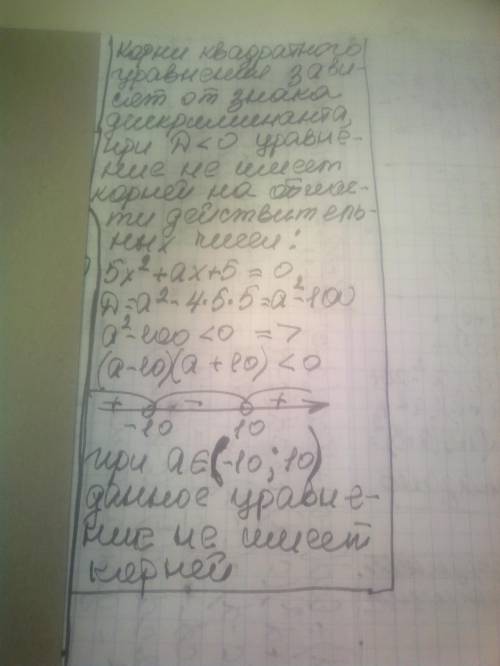 Корни квадратного
уравнение зави-
сет от знака
дискриминанта,
при D<0 уравне-
ние не имеет
корней на облас-
ти действитель-
ных чисел:
5x²+ax+5=0
D=a²-4·5·5=a²-100
a²-100<0 =>
(a-10)(a+10)<0
+ - +
-10 10
при a∈(-10;10)
данное уравне-
ние не имеет
корней